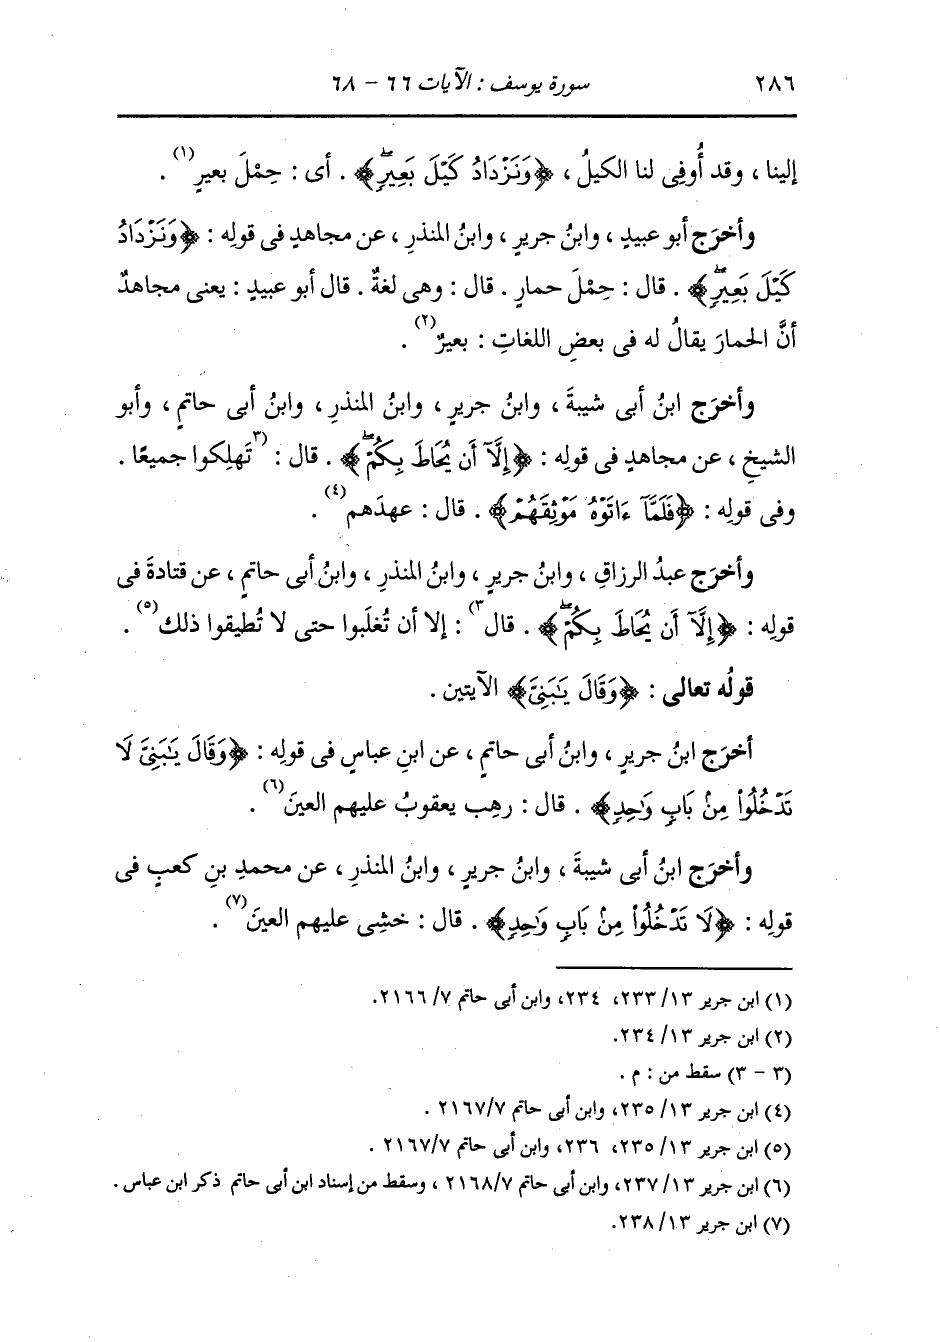 ٢٨٦ سورة يوسف : الآيات ٦٦ - ٦٨
إلينا ، وقد أُوفِى لنا الكيلُ ، ﴿وَنَزْدَادُ كَيْلَ بَعِيرٍۖ﴾ . أى : حِمْلَ بعيرٍ(١) .
وأخرَج أبو عبيدٍ ، وابنُ جريرٍ ، وابنُ المنذرِ ، عن مجاهدٍ فى قولِه : ﴿وَنَزْدَادُ
كَيْلَ بَعِيرٍۖ﴾ . قال : حِمْلَ حمارٍ . قال : وهى لغةٌ . قال أبو عبيدٍ : يعنى مجاهدٌ
أنَّ الحمارَ يقالُ له فى بعضِ اللغاتِ : بعيرٌ(٢) .
وأخرَج ابنُ أبى شيبةَ ، وابنُ جريرٍ ، وابنُ المنذرِ ، وابنُ أبى حاتمٍ ، وأبو
الشيخِ ، عن مجاهدٍ فى قولِه : ﴿إِلَّآ أَن يُحَاطَ بِكُمْۖ﴾ . قال : (٣تَهلِكوا جميعًا .
وفى قولِه : ﴿فَلَمَّآ ءَاتَوْهُ مَوْثِقَهُمْ﴾ . قال : عهدَهم(٤) .
وأخرَج عبدُ الرزاقِ ، وابنُ جريرٍ ، وابنُ المنذرِ ، وابنُ أبى حاتمٍ ، عن قتادةَ فى
قولِه : ﴿إِلَّآ أَن يُحَاطَ بِكُمْۖ﴾ . قال٣) : إلا أن تُغلَبوا حتى لا تُطيقوا ذلك(٥) .
قولُه تعالى : ﴿وَقَالَ يَٰبَنِىَّ﴾ الآيتين .
أخرَج ابنُ جريرٍ ، وابنُ أبى حاتمٍ ، عن ابنِ عباسٍ فى قولِه : ﴿وَقَالَ يَٰبَنِىَّ لَا
تَدْخُلُوا۟ مِنۢ بَابٍ وَٰحِدٍ﴾ . قال : رهِب يعقوبُ عليهم العينَ(٦) .
وأخرَج ابنُ أبى شيبةَ ، وابنُ جريرٍ ، وابنُ المنذرِ ، عن محمدِ بنِ كعبٍ فى
قولِه : ﴿لَا تَدْخُلُوا۟ مِنۢ بَابٍ وَٰحِدٍ﴾ . قال : خشِى عليهم العينَ(٧) .
(١) ابن جرير ١٣/ ٢٣٣، ٢٣٤، وابن أبى حاتم ٧/ ٢١٦٦.
(٢) ابن جرير ١٣/ ٢٣٤.
(٣ - ٣) سقط من : م .
(٤) ابن جرير ١٣/ ٢٣٥، وابن أبى حاتم ٢١٦٧/٧ .
(٥) ابن جرير ١٣/ ٢٣٥، ٢٣٦، وابن أبى حاتم ٢١٦٧/٧ .
(٦) ابن جرير ١٣/ ٢٣٧، وابن أبى حاتم ٢١٦٨/٧ ، وسقط من إسناد ابن أبى حاتم ذكر ابن عباس .
(٧) ابن جرير ١٣/ ٢٣٨.